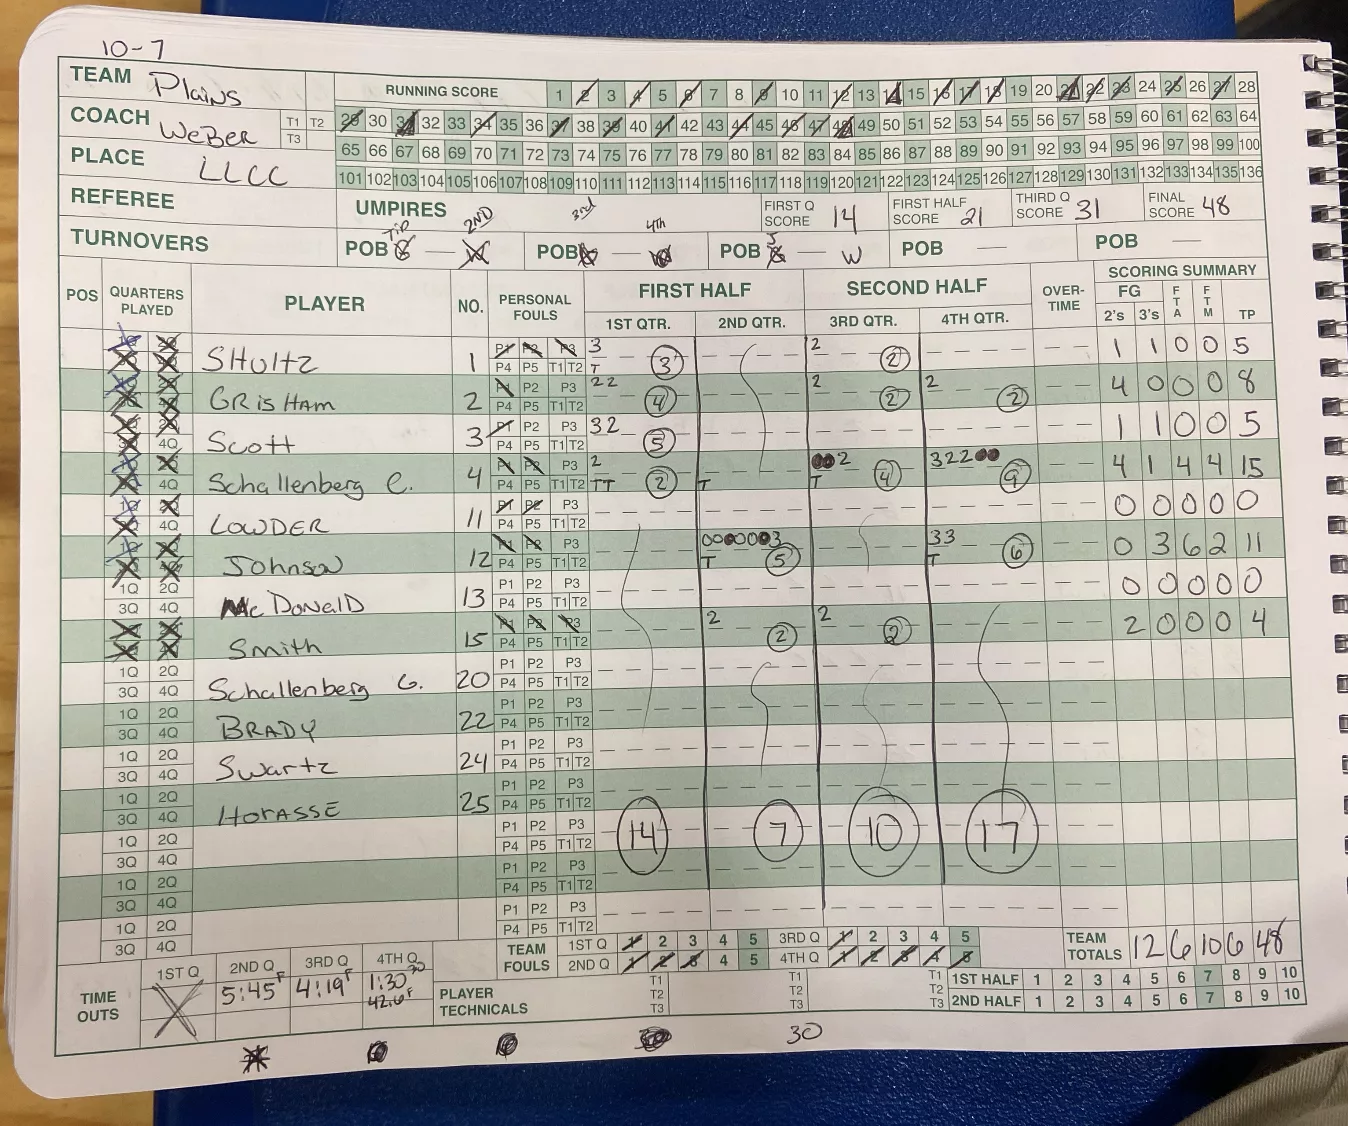 10-7
TEAM Plains
COACH WeBER T1 T2 T3
PLACE LLCC
REFEREE
TURNOVERS
RUNNING SCORE 1 2 3 4 5 6 7 8 9 10 11 12 13 14 15 16 17 18 19 20 21 22 23 24 25 26 27 28
29 30 31 32 33 34 35 36 37 38 39 40 41 42 43 44 45 46 47 48 49 50 51 52 53 54 55 56 57 58 59 60 61 62 63 64
65 66 67 68 69 70 71 72 73 74 75 76 77 78 79 80 81 82 83 84 85 86 87 88 89 90 91 92 93 94 95 96 97 98 99 100
101 102 103 104 105 106 107 108 109 110 111 112 113 114 115 116 117 118 119 120 121 122 123 124 125 126 127 128 129 130 131 132 133 134 135 136
UMPIRES FIRST Q SCORE 14 FIRST HALF SCORE 21 THIRD Q SCORE 31 FINAL SCORE 48
TIP 2ND 3rd 4th
POB — POB — POB J — W POB — POB —
POS QUARTERS PLAYED PLAYER NO. PERSONAL FOULS FIRST HALF SECOND HALF OVER-TIME SCORING SUMMARY
1ST QTR. 2ND QTR. 3RD QTR. 4TH QTR. FG 2's 3's FTA FTM TP
SHultz 1 P1 P2 P3 3 2 1 1 0 0 5
P4 P5 T1 T2 T 3 2
GRisHam 2 P1 P2 P3 22 2 2 4 0 0 0 8
P4 P5 T1 T2 4 2 2
Scott 3 P1 P2 P3 32 1 1 0 0 5
4Q P4 P5 T1 T2 5
Schallenberg C. 4 P1 P2 P3 2 002 32200 4 1 4 4 15
4Q P4 P5 T1 T2 TT 2 T T 4 9
LOWDER 11 P1 P2 P3 0 0 0 0 0
4Q P4 P5 T1 T2
Johnson 12 P1 P2 P3 0000003 33 0 3 6 2 11
P4 P5 T1 T2 T 5 T 6
1Q 2Q McDonalD 13 P1 P2 P3 0 0 0 0 0
3Q 4Q P4 P5 T1 T2
Smith 15 P1 P2 P3 2 2 2 0 0 0 4
P4 P5 T1 T2 2 2
1Q 2Q Schallenberg G. 20 P1 P2 P3
3Q 4Q P4 P5 T1 T2
1Q 2Q BRADY 22 P1 P2 P3
3Q 4Q P4 P5 T1 T2
1Q 2Q Swartz 24 P1 P2 P3
3Q 4Q P4 P5 T1 T2
1Q 2Q HorASSE 25 P1 P2 P3
3Q 4Q P4 P5 T1 T2
1Q 2Q P1 P2 P3 14 7 10 17
3Q 4Q P4 P5 T1 T2
1Q 2Q P1 P2 P3
3Q 4Q P4 P5 T1 T2
1Q 2Q P1 P2 P3
3Q 4Q P4 P5 T1 T2
TEAM FOULS 1ST Q 1 2 3 4 5 3RD Q 1 2 3 4 5 TEAM TOTALS 12 6 10 6 48
2ND Q 1 2 3 4 5 4TH Q 1 2 3 4 5
TIME OUTS 1ST Q 2ND Q 3RD Q 4TH Q
5:45 F 4:19 F 1:30 30
42.6 F
PLAYER TECHNICALS T1 T2 T3 T1 T2 T3 T1 T2 T3
1ST HALF 1 2 3 4 5 6 7 8 9 10
2ND HALF 1 2 3 4 5 6 7 8 9 10
30